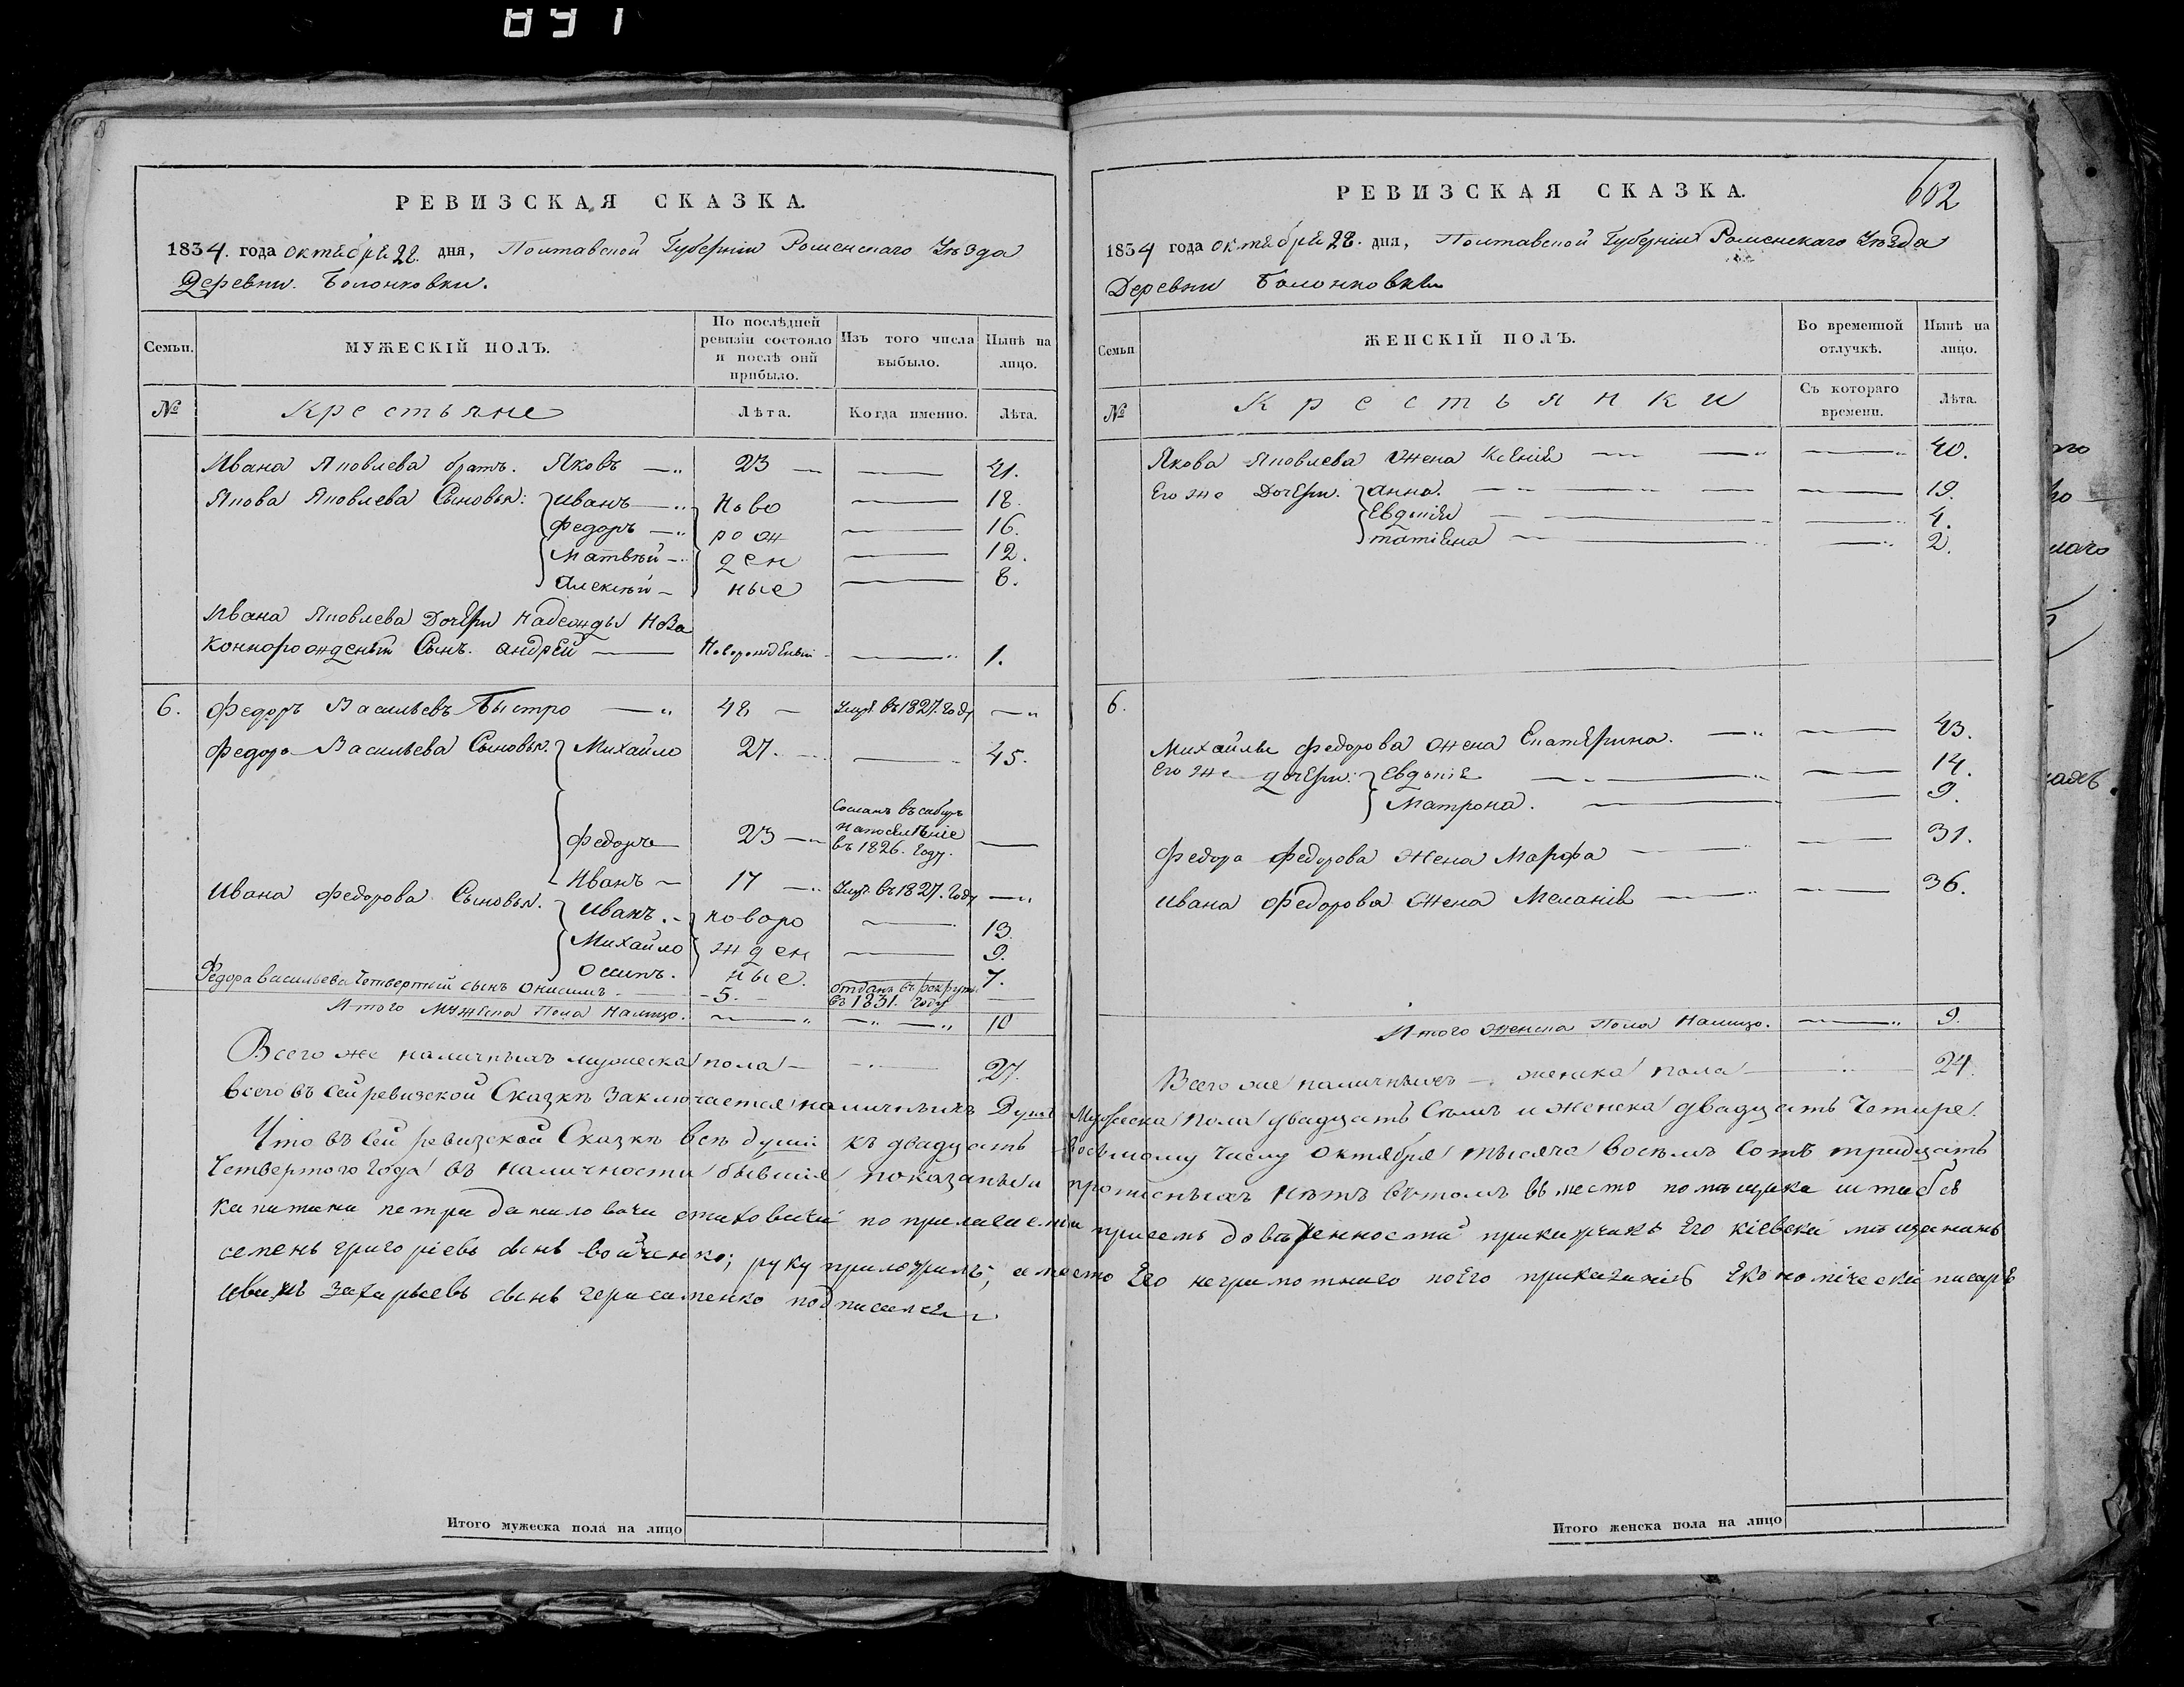 891
РЕВИЗСКАЯ СКАЗКА.
1834. года октября 28. дня, Полтавской Губернии Роменскаго Уезда
Деревни. Болонковки.
Семьи.
МУЖЕСКІЙ ПОЛЪ.
По послѣдней ревизіи состояло и послѣ оній прибыло.
Изъ того числа выбыло.
Нынѣ на лицо.
№
Крестьяне
Лѣта.
Когда именно.
Лѣта.
Ивана Яковлева братъ. Яковъ 23 41.
Якова Яковлева Сыновья: Иванъ Ново 18.
Федоръ рож 16.
Матвѣй ден 12.
Алексѣй ные 8.
Ивана Яковлева Дочери Надежды Неза
коннорожденый Сынъ. андрей Новорожденый 1.
6. Федоръ Васильевъ Быстро 48 Умре въ 1827. году
Федора Васильева Сыновья. Михайло 27. 45.
Федоръ 23 Сосланъ въ сибирь на поселеніе въ 1826. году.
Иванъ 17 Умре въ 1827. году
Ивана Федорова Сыновья. Иванъ. новоро 13.
Михайло жден 9.
Осипъ. ные. 7.
Федора Васильева Четвертый сынъ Онисимъ 5. отданъ въ рекруты въ 1831. году
Итого Мужеска Пола Налицо. 10
Всего же наличныхъ мужеска пола 27.
РЕВИЗСКАЯ СКАЗКА.
602
1834 года октября 28. дня, Полтавской Губерніи Роменскаго Уезда
Деревни Болонковки
Семьи
ЖЕНСКІЙ ПОЛЪ.
Во временной отлучкѣ.
Нынѣ на лицо.
№
Крестьянки
Съ котораго времени.
Лѣта.
Якова Яковлева Жена Ксенія 40.
Его же Дочери. анна. 19.
Евдокія 4.
татіяна 2.
6.
Михайлы Федорова жена Екатерина. 43.
Его же дочери: Евдокія 14.
Матрона. 9.
Федора Федорова Жена Марфа 31.
Ивана Федорова Жена Меланія 36.
Итого Женска Пола Налицо. 9.
Всего же наличныхъ женска пола 24.
Всего въ сей ревизской Сказкѣ Заключается наличныхъ Душъ Мужеска Пола двадцать Семь и Женска двадцать Четыре.
Что въ сей ревизской Сказкѣ все души къ двадцать восьмому числу Октября тысяча восемь сотъ тридцать
Четвертого года въ наличности бывшіе показаны и прописныхъ нѣтъ въ томъ вместо помѣщика штабсъ
капитана петра даниловича по прилагаемой присемъ доверенности прикащикъ Его кіевскій мѣщанинъ
семенъ григоріевъ сынъ войченко; руку приложилъ, а место Его неграмотного по Его приказанію Экономіческій писарь
иванъ захарьевъ сынъ герасименко подписался
Итого мужеска пола на лицо
Итого женска пола на лицо